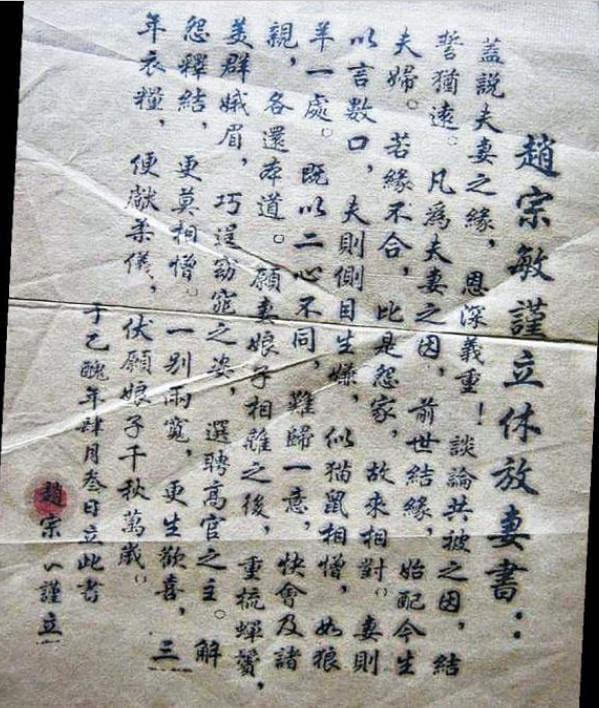 趙宗敏謹立休放妻書：
蓋說夫妻之緣，恩深義重！談論共被之因，結
誓猶遠。凡為夫妻之因，前世結緣，始配今生
夫婦。若緣不合，比是怨家，故來相對。妻則
以言數口，夫則側目生嫌，似猫鼠相憎，如狼
羊一處。既以二心不同，難歸一意，快會及諸
親，各還本道。願妻娘子相離之後，重梳蟬鬢，
美群娥眉，巧逞窈窕之姿，選聘高官之主。解
怨釋結，更莫相憎。一別兩寬，更生歡喜，三
年衣糧，便獻柔儀，伏願娘子千秋萬歲。
于己醜年肆月叁日立此書
趙宗謹立